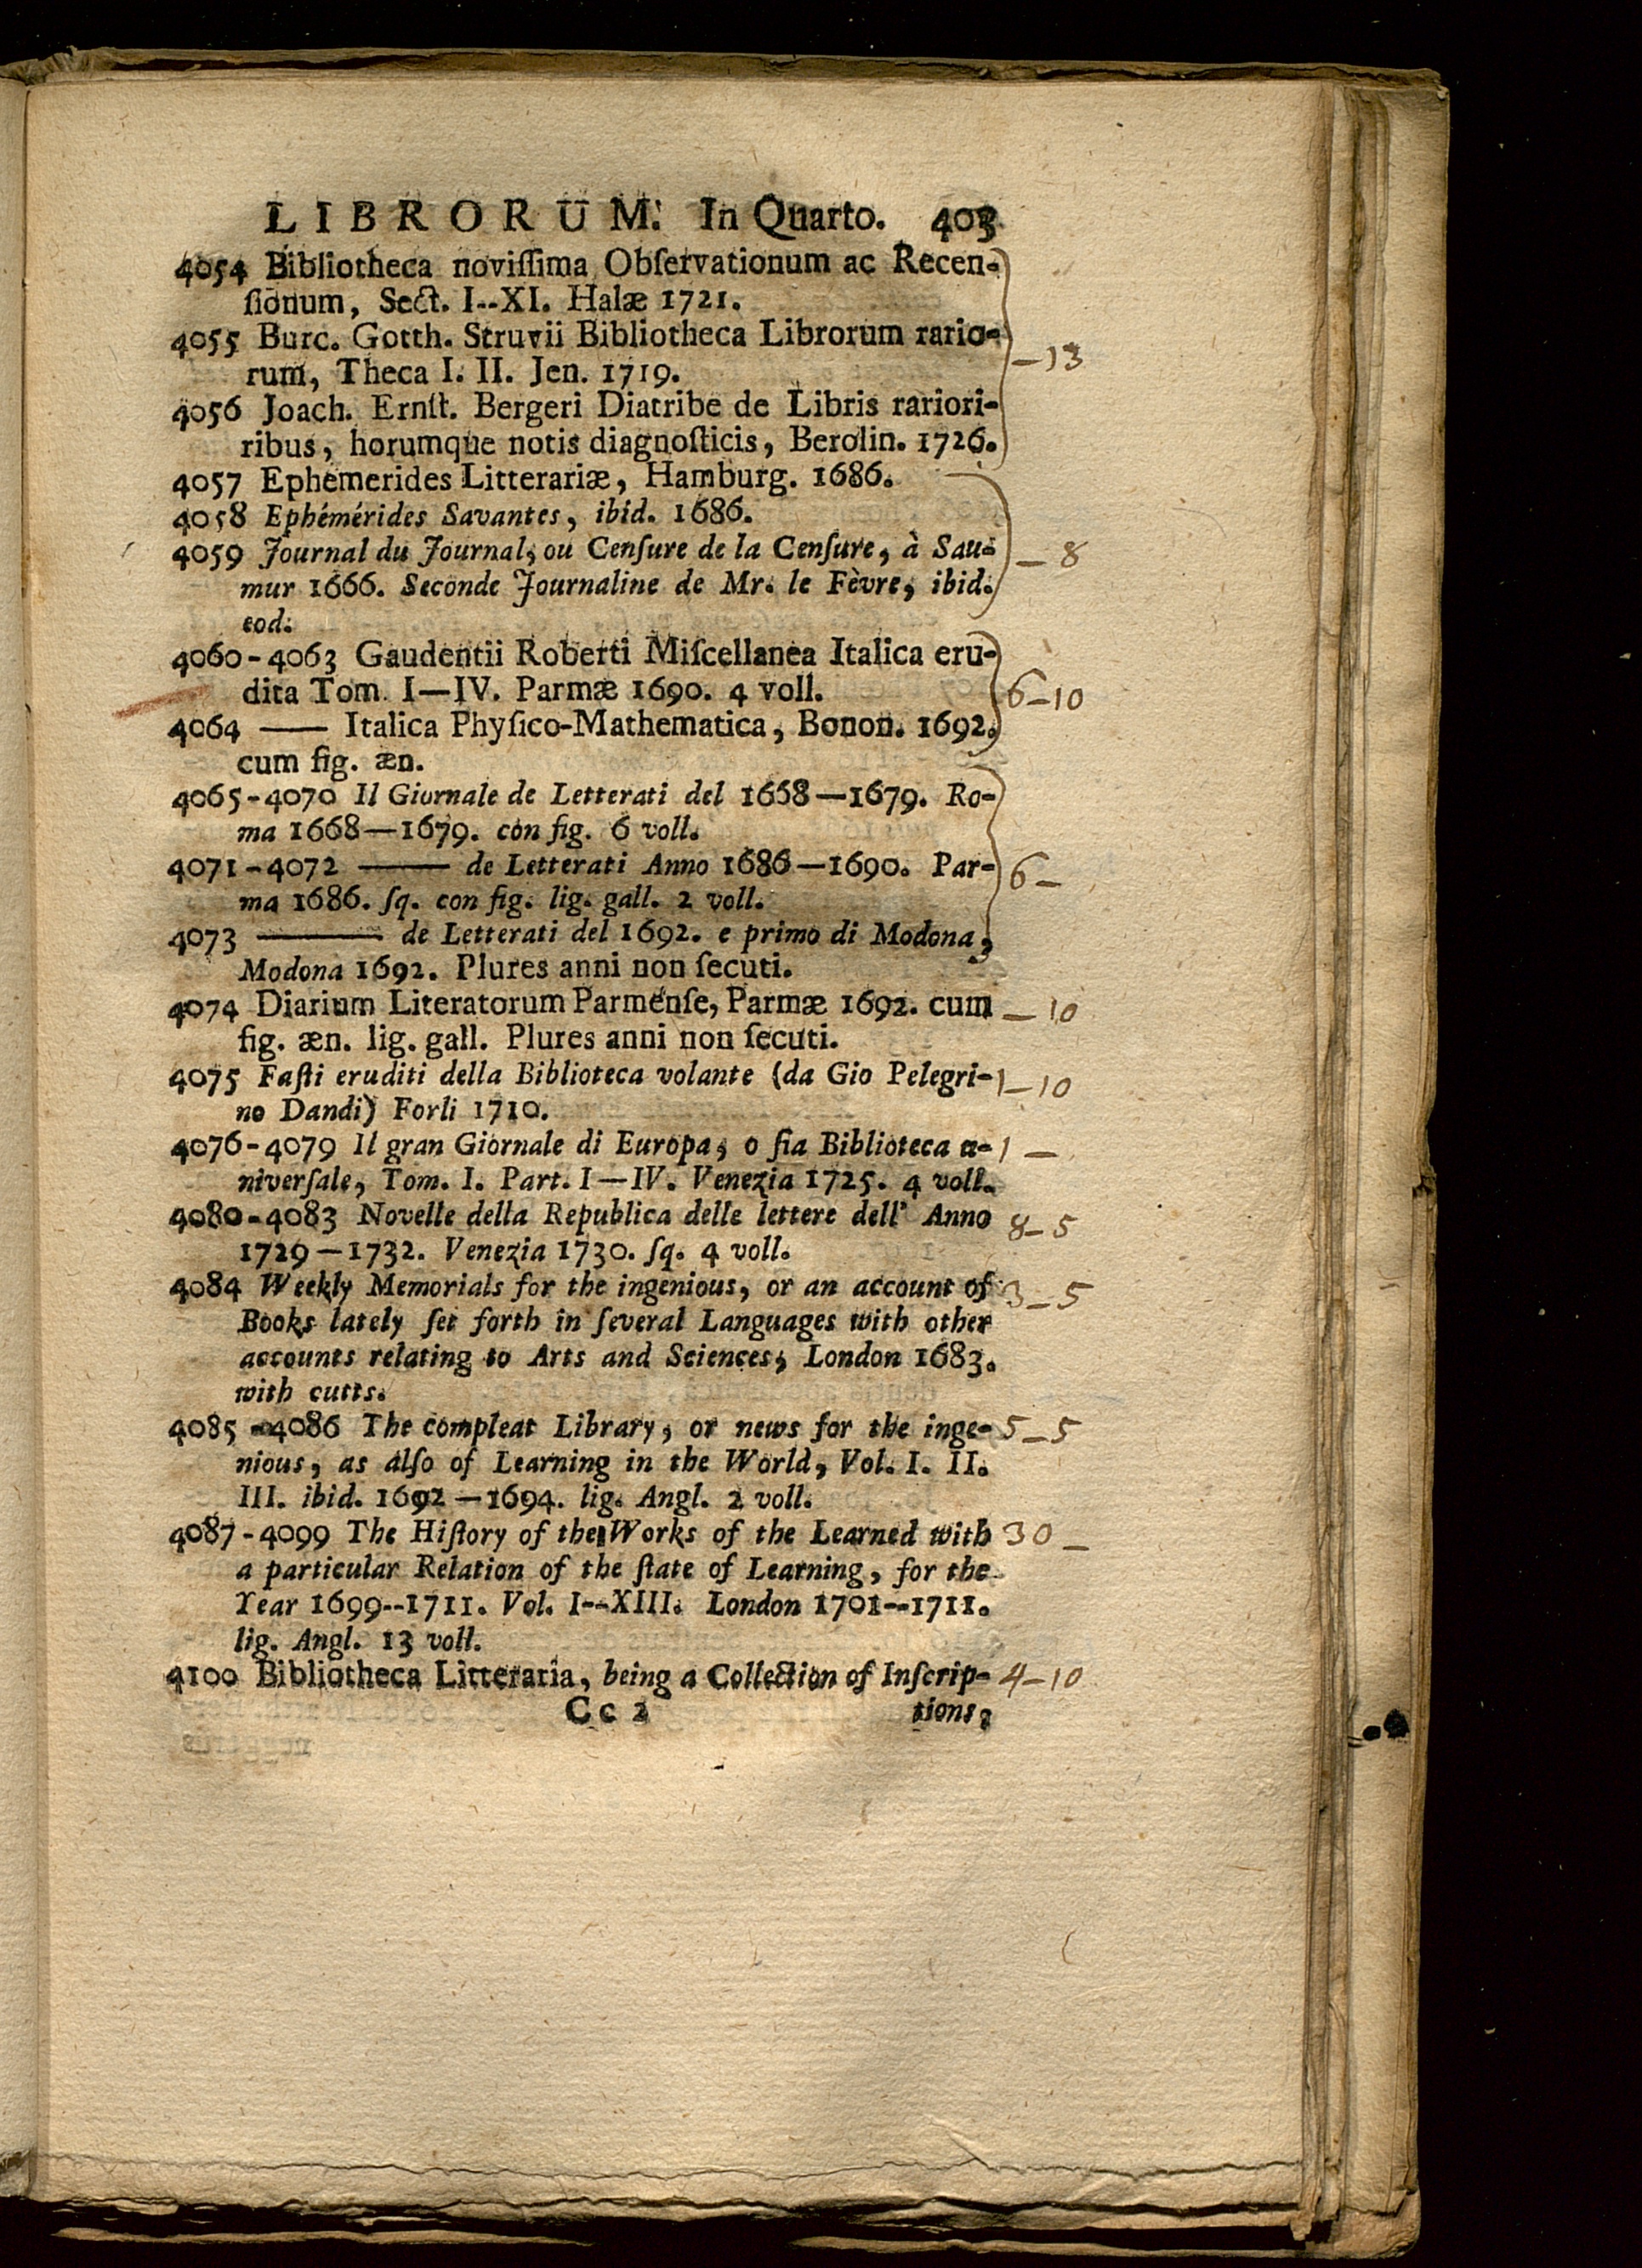 LIBRORUM. In Quarto. 403
4054 Bibliotheca noviſſima Obſervationum ac Recen-
ſionum, Sect. I--XI. Halæ 1721.
4055 Burc. Gotth. Struvii Bibliotheca Librorum rario-
rum, Theca I. II. Jen. 1719. —13
4056 Joach. Ernſt. Bergeri Diatribe de Libris rariori-
ribus, horumque notis diagnoſticis, Berolin. 1726.
4057 Ephemerides Litterariæ, Hamburg. 1686.
4058 Ephémérides Savantes, ibid. 1686.
4059 Journal du Journal, ou Cenſure de la Cenſure, à Sau- —8
mur 1666. Seconde Journaline de Mr. le Fèvre, ibid.
eod.
4060-4063 Gaudentii Roberti Miſcellanea Italica eru-
dita Tom. I—IV. Parmæ 1690. 4 voll. 6—10
4064 —— Italica Phyſico-Mathematica, Bonon. 1692.
cum fig. æn.
4065-4070 Il Giornale de Letterati del 1668—1679. Ro-
ma 1668—1679. con fig. 6 voll.
4071-4072 —— de Letterati Anno 1686—1690. Par- 6—
ma 1686. ſq. con fig. lig. gall. 2 voll.
4073 —— de Letterati del 1692. e primo di Modona,
Modona 1692. Plures anni non ſecuti.
4074 Diarium Literatorum Parmenſe, Parmæ 1692. cum —10
fig. æn. lig. gall. Plures anni non ſecuti.
4075 Faſti eruditi della Biblioteca volante (da Gio Pelegri- 1—10
no Dandi) Forli 1710.
4076-4079 Il gran Giornale di Europa, o ſia Biblioteca u- 1—
niverſale, Tom. I. Part. I—IV. Venezia 1725. 4 voll.
4080-4083 Novelle della Republica delle lettere dell' Anno 8—5
1729—1732. Venezia 1730. ſq. 4 voll.
4084 Weekly Memorials for the ingenious, or an account of 3—5
Books lately ſet forth in ſeveral Languages with other
accounts relating to Arts and Sciences, London 1683.
with cutts.
4085-4086 The compleat Library, or news for the inge- 5—5
nious, as alſo of Learning in the World, Vol. I. II.
III. ibid. 1692—1694. lig. Angl. 2 voll.
4087-4099 The Hiſtory of the Works of the Learned with 30—
a particular Relation of the ſtate of Learning, for the
Year 1699--1711. Vol. I--XIII. London 1701--1711.
lig. Angl. 13 voll.
4100 Bibliotheca Litteraria, being a Collection of Inſcrip- 4—10
Cc 2 tions,